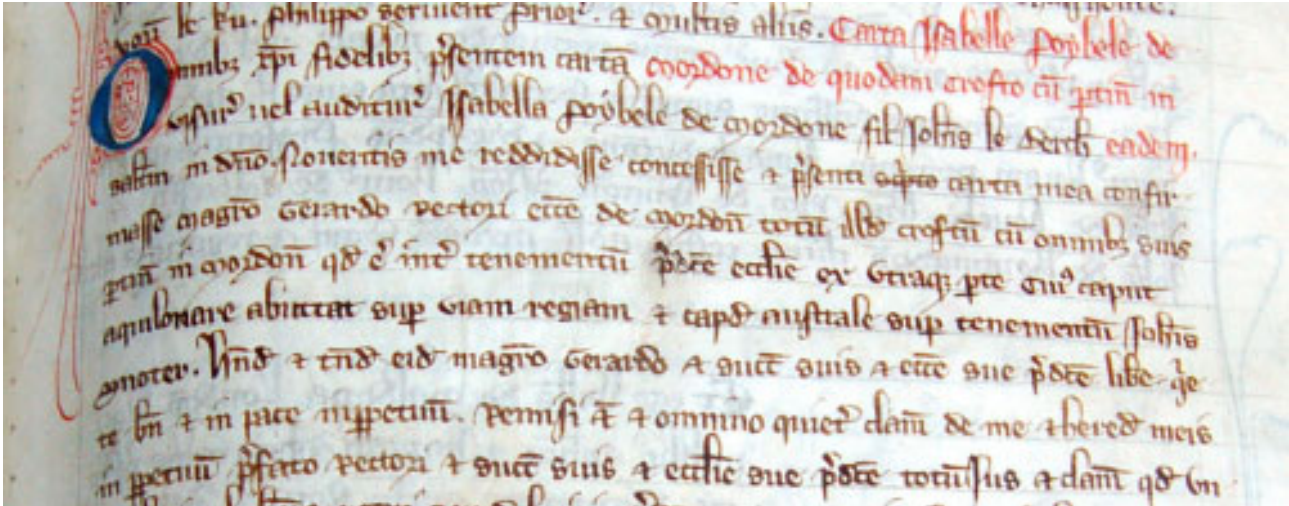 le ku. Philippo servient prior̄. ⁊ multis aliis. Carta Isabelle Poybele de
Omnibȝ xp̄i fidelibȝ p̄sentem cartā mordone de quodam crofto cū ptiñ in
visur̄ uel auditur̄ Isabella Poybele de mordone fil Joħis le Berch eadem.
saltm in dño. Noueritis me reddidisse concessisse ⁊ p̄senti carta mea confir
masse magr̄o Gerardo Rectori ecce de mordoñ totū illđ croftū cū omnibȝ suis
ptiñ in mordoñ qđ ē int̄ tenementū p̄dce ecclie ex utraqȝ pte cui᾽ caput
aquilonare abuttat sup viam regiam ⁊ capđ australe sup tenementū Joħis
Hñđ ⁊ tñđ eiđ magr̄o Gerardo ⁊ succ̄ suis ⁊ ecce sue p̄dce libe q̇e
te bñ ⁊ in pace inppetuū. Remisi ⁊ omnino quiet̄ clam̄ de me ⁊ heređ meis
in ppetuū p̄fato Rectori ⁊ succ̄ suis ⁊ ecclie sue p̄dce totū Jus ⁊ clam̄ qđ vn